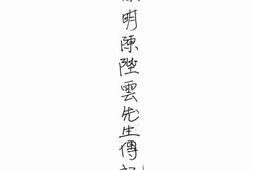 明陳陛雲先生傳